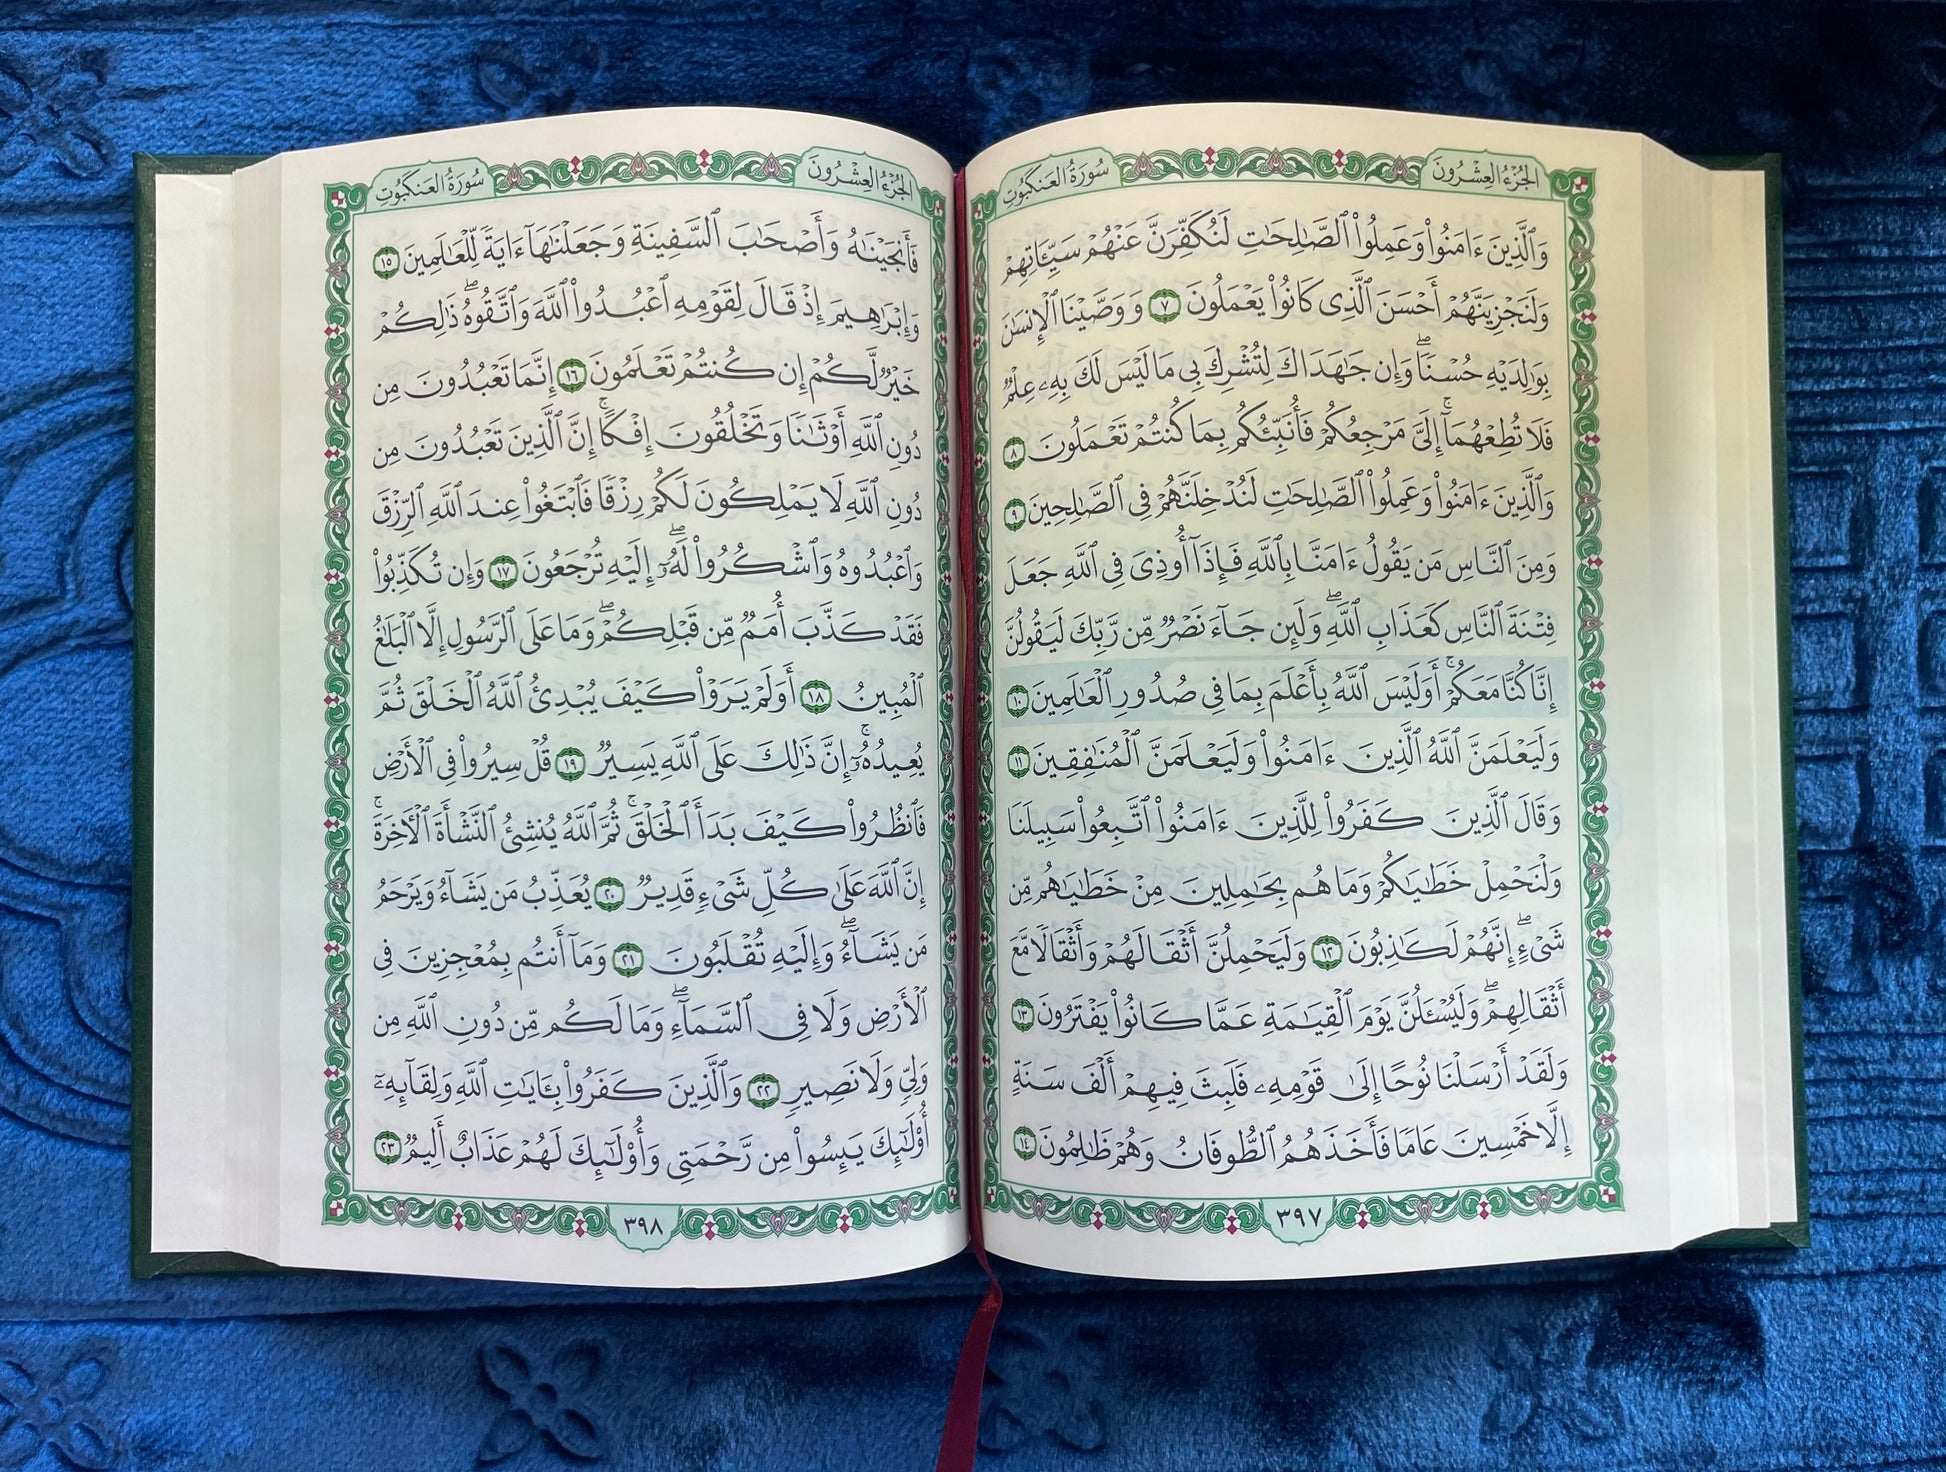 الجُزْءُ العِشْرُونَ
سُورَةُ العَنكَبُوتِ
وَٱلَّذِينَ ءَامَنُوا۟ وَعَمِلُوا۟ ٱلصَّٰلِحَٰتِ لَنُكَفِّرَنَّ عَنْهُمْ سَيِّـَٔاتِهِمْ
وَلَنَجْزِيَنَّهُمْ أَحْسَنَ ٱلَّذِى كَانُوا۟ يَعْمَلُونَ ٧ وَوَصَّيْنَا ٱلْإِنسَٰنَ
بِوَٰلِدَيْهِ حُسْنًا ۖ وَإِن جَٰهَدَاكَ لِتُشْرِكَ بِى مَا لَيْسَ لَكَ بِهِۦ عِلْمٌ
فَلَا تُطِعْهُمَآ ۚ إِلَىَّ مَرْجِعُكُمْ فَأُنَبِّئُكُم بِمَا كُنتُمْ تَعْمَلُونَ ٨
وَٱلَّذِينَ ءَامَنُوا۟ وَعَمِلُوا۟ ٱلصَّٰلِحَٰتِ لَنُدْخِلَنَّهُمْ فِى ٱلصَّٰلِحِينَ ٩
وَمِنَ ٱلنَّاسِ مَن يَقُولُ ءَامَنَّا بِٱللَّهِ فَإِذَآ أُوذِىَ فِى ٱللَّهِ جَعَلَ
فِتْنَةَ ٱلنَّاسِ كَعَذَابِ ٱللَّهِ ۖ وَلَئِن جَآءَ نَصْرٌ مِّن رَّبِّكَ لَيَقُولُنَّ
إِنَّا كُنَّا مَعَكُمْ ۚ أَوَلَيْسَ ٱللَّهُ بِأَعْلَمَ بِمَا فِى صُدُورِ ٱلْعَٰلَمِينَ ١٠
وَلَيَعْلَمَنَّ ٱللَّهُ ٱلَّذِينَ ءَامَنُوا۟ وَلَيَعْلَمَنَّ ٱلْمُنَٰفِقِينَ ١١
وَقَالَ ٱلَّذِينَ كَفَرُوا۟ لِلَّذِينَ ءَامَنُوا۟ ٱتَّبِعُوا۟ سَبِيلَنَا
وَلْنَحْمِلْ خَطَٰيَٰكُمْ وَمَا هُم بِحَٰمِلِينَ مِنْ خَطَٰيَٰهُم مِّن
شَىْءٍ ۖ إِنَّهُمْ لَكَٰذِبُونَ ١٢ وَلَيَحْمِلُنَّ أَثْقَالَهُمْ وَأَثْقَالًا مَّعَ
أَثْقَالِهِمْ ۖ وَلَيُسْـَٔلُنَّ يَوْمَ ٱلْقِيَٰمَةِ عَمَّا كَانُوا۟ يَفْتَرُونَ ١٣
وَلَقَدْ أَرْسَلْنَا نُوحًا إِلَىٰ قَوْمِهِۦ فَلَبِثَ فِيهِمْ أَلْفَ سَنَةٍ
إِلَّا خَمْسِينَ عَامًا فَأَخَذَهُمُ ٱلطُّوفَانُ وَهُمْ ظَٰلِمُونَ ١٤
٣٩٧
الجُزْءُ العِشْرُونَ
سُورَةُ العَنكَبُوتِ
فَأَنجَيْنَٰهُ وَأَصْحَٰبَ ٱلسَّفِينَةِ وَجَعَلْنَٰهَآ ءَايَةً لِّلْعَٰلَمِينَ ١٥
وَإِبْرَٰهِيمَ إِذْ قَالَ لِقَوْمِهِ ٱعْبُدُوا۟ ٱللَّهَ وَٱتَّقُوهُ ۖ ذَٰلِكُمْ
خَيْرٌ لَّكُمْ إِن كُنتُمْ تَعْلَمُونَ ١٦ إِنَّمَا تَعْبُدُونَ مِن
دُونِ ٱللَّهِ أَوْثَٰنًا وَتَخْلُقُونَ إِفْكًا ۚ إِنَّ ٱلَّذِينَ تَعْبُدُونَ مِن
دُونِ ٱللَّهِ لَا يَمْلِكُونَ لَكُمْ رِزْقًا فَٱبْتَغُوا۟ عِندَ ٱللَّهِ ٱلرِّزْقَ
وَٱعْبُدُوهُ وَٱشْكُرُوا۟ لَهُۥٓ ۖ إِلَيْهِ تُرْجَعُونَ ١٧ وَإِن تُكَذِّبُوا۟
فَقَدْ كَذَّبَ أُمَمٌ مِّن قَبْلِكُمْ ۖ وَمَا عَلَى ٱلرَّسُولِ إِلَّا ٱلْبَلَٰغُ
ٱلْمُبِينُ ١٨ أَوَلَمْ يَرَوْا۟ كَيْفَ يُبْدِئُ ٱللَّهُ ٱلْخَلْقَ ثُمَّ
يُعِيدُهُۥٓ ۚ إِنَّ ذَٰلِكَ عَلَى ٱللَّهِ يَسِيرٌ ١٩ قُلْ سِيرُوا۟ فِى ٱلْأَرْضِ
فَٱنظُرُوا۟ كَيْفَ بَدَأَ ٱلْخَلْقَ ۚ ثُمَّ ٱللَّهُ يُنشِئُ ٱلنَّشْأَةَ ٱلْـَٔاخِرَةَ ۚ
إِنَّ ٱللَّهَ عَلَىٰ كُلِّ شَىْءٍ قَدِيرٌ ٢٠ يُعَذِّبُ مَن يَشَآءُ وَيَرْحَمُ
مَن يَشَآءُ ۖ وَإِلَيْهِ تُقْلَبُونَ ٢١ وَمَآ أَنتُم بِمُعْجِزِينَ فِى
ٱلْأَرْضِ وَلَا فِى ٱلسَّمَآءِ ۖ وَمَا لَكُم مِّن دُونِ ٱللَّهِ مِن
وَلِىٍّ وَلَا نَصِيرٍ ٢٢ وَٱلَّذِينَ كَفَرُوا۟ بِـَٔايَٰتِ ٱللَّهِ وَلِقَآئِهِۦٓ
أُو۟لَٰٓئِكَ يَئِسُوا۟ مِن رَّحْمَتِى وَأُو۟لَٰٓئِكَ لَهُمْ عَذَابٌ أَلِيمٌ ٢٣
٣٩٨